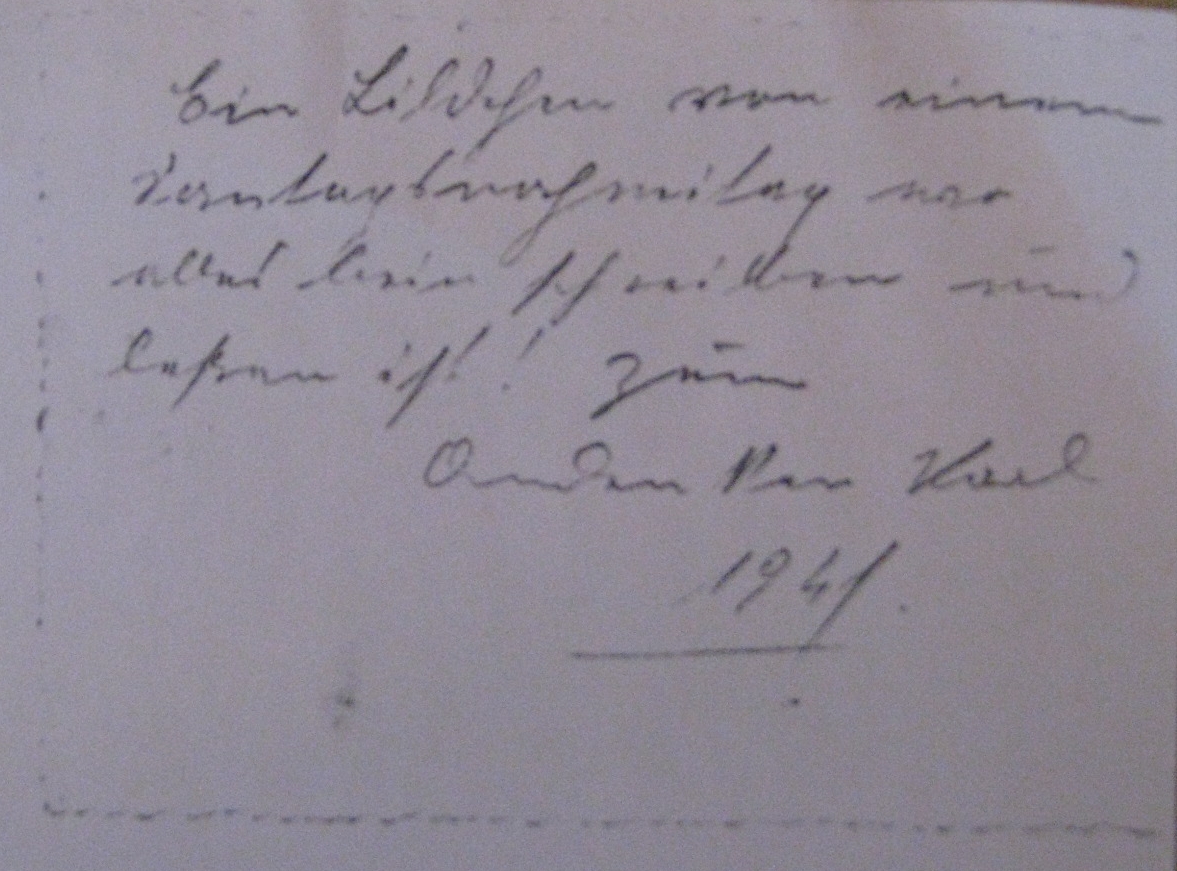 Ein Bildchen von einem
Sontagsnachmitag wo
alles beim schreiben und
leßen ist! Zum
Anden Ken Karl
1941.